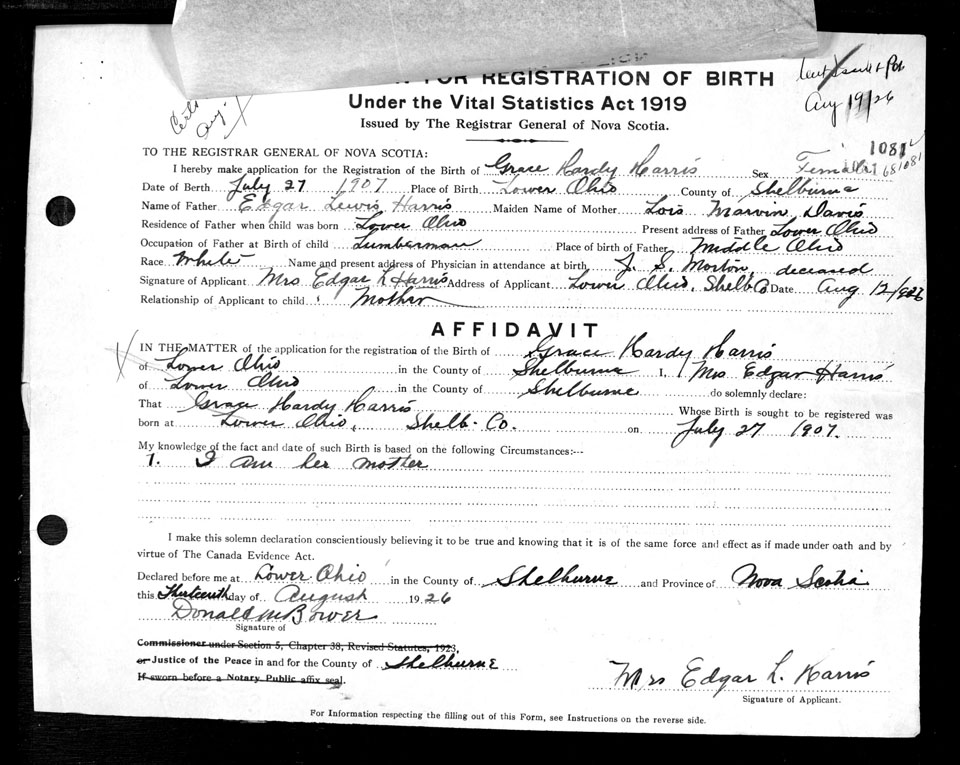 FOR REGISTRATION OF BIRTH
Under the Vital Statistics Act 1919
Issued by The Registrar General of Nova Scotia.
Aug 19/26
1081
TO THE REGISTRAR GENERAL OF NOVA SCOTIA:
I hereby make application for the Registration of the Birth of Grace Hardy Harris Sex Female
Date of Birth July 27 1907 Place of Birth Lower Ohio County of Shelburne
Name of Father Edgar Lewis Harris Maiden Name of Mother Lois Marvin Davis
Residence of Father when child was born Lower Ohio Present address of Father Lower Ohio
Occupation of Father at Birth of child Lumberman Place of birth of Father Middle Ohio
Race White Name and present address of Physician in attendance at birth J. S. Morton, deceased
Signature of Applicant Mrs Edgar L Harris Address of Applicant Lower Ohio, Shelb. Co Date Aug 12/1926
Relationship of Applicant to child Mother
AFFIDAVIT
IN THE MATTER of the application for the registration of the Birth of Grace Hardy Harris
of Lower Ohio in the County of Shelburne I, Mrs Edgar Harris
of Lower Ohio in the County of Shelburne do solemnly declare:
That Grace Hardy Harris Whose Birth is sought to be registered was
born at Lower Ohio, Shelb. Co. on July 27 1907.
My knowledge of the fact and date of such Birth is based on the following Circumstances:—
1. I am her mother
I make this solemn declaration conscientiously believing it to be true and knowing that it is of the same force and effect as if made under oath and by
virtue of The Canada Evidence Act.
Declared before me at Lower Ohio in the County of Shelburne and Province of Nova Scotia
this Thirteenth day of August 1926
Donald M Bower
Signature of
Commissioner under Section 5, Chapter 38, Revised Statutes, 1923,
or Justice of the Peace in and for the County of Shelburne
If sworn before a Notary Public affix seal.
Mrs Edgar L. Harris
Signature of Applicant.
For Information respecting the filling out of this Form, see Instructions on the reverse side.